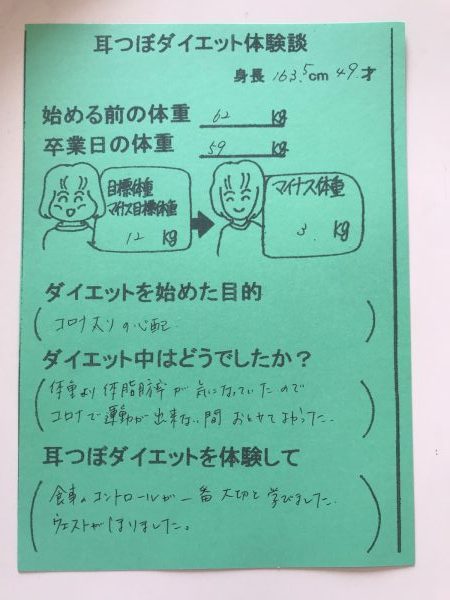 耳つぼダイエット体験談
身長 163.5cm 49才
始める前の体重 62 kg
卒業日の体重 59 kg
目標体重
マイナス目標体重
12 kg
マイナス体重
3. kg
ダイエットを始めた目的
コロナ太りの心配
ダイエット中はどうでしたか?
体重より体脂肪率が気になっていたので
コロナで運動が出来ない間おとせてよかった.
耳つぼダイエットを体験して
食事のコントロールが一番大切と学びました.
ウエストがしまりました。